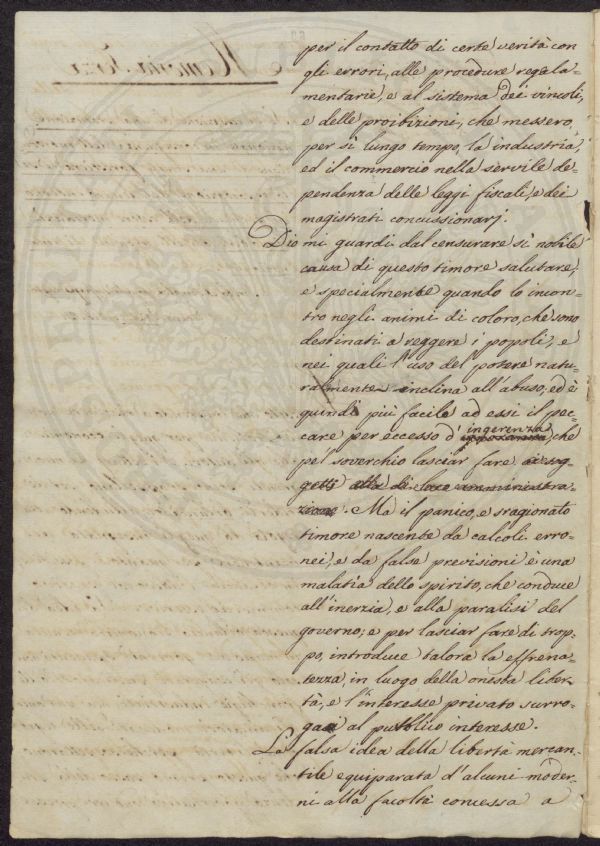 per il contatto di certe verità con
gli errori, alle procedure regola=
mentarie, e al sistema dei vincoli,
e delle proibizioni, che messero,
per sì lungo tempo, la industria,
ed il commercio nella servile de=
pendenza delle leggi fiscali, e dei
magistrati concussionarj.
Dio mi guardi dal censurare sì nobile
causa di questo timore salutare,
e specialmente quando lo incon=
tro negli animi di coloro, che sono
destinati a reggere i popoli, e
nei quali l'uso del potere natu=
ralmente inclina all'abuso, ed è
quindi più facile ad essi il pec=
care per eccesso d'ingerenza, che
pel soverchio lasciar fare ai sog=
getti alla di loro amministra=
zione. Ma il panico, e sragionato
timore nascente da calcoli erro=
nei, e da false previsioni è una
malatìa dello spirito, che conduce
all'inerzia, e alla paralisi del
governo; e per lasciar fare di trop=
po, introduce talora la effrena=
tezza, in luogo della onesta liber=
tà, e l'interesse privato surro=
ga al pubblico interesse.
La falsa idea della libertà mercan=
tile equiparata d'alcuni moder=
ni alla facoltà concessa a